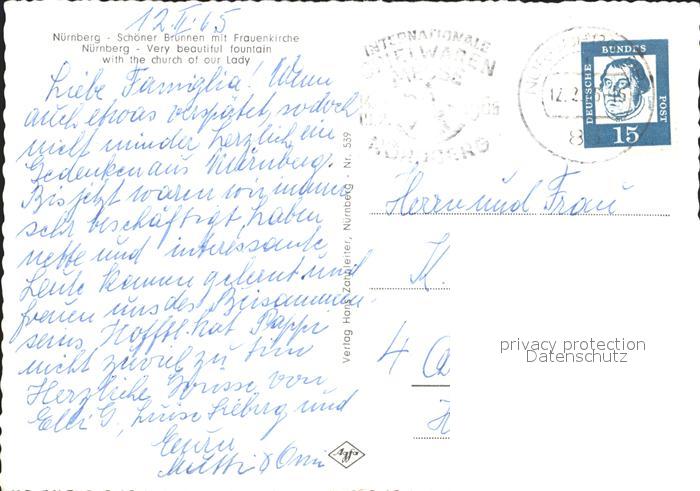 12.II.65
Nürnberg - Schöner Brunnen mit Frauenkirche
Nürnberg - Very beautiful fountain
with the church of our Lady
Liebe Famiglia! Wenn
auch etwas verspätet, so doch
nicht minder herzlich ein
Gedenken aus Nürnberg.
Bis jetzt waren wir immer
sehr beschäftigt, haben
nette und interessante
Leute kennen gelernt und
freuen uns des Beisammen-
seins. Hofftl. hat Pappi
nicht zuviel zu tun
Herzliche Grüsse von
Elli G., Luise und
Eure
Mutti & Omi
Verlag Hans Zahnleiter, Nürnberg - Nr. 539
Agfa
INTERNATIONALE
SPIELWAREN
MESSE
NÜRNBERG
DEUTSCHE BUNDES POST
15
Herrn und Frau
K.
4
privacy protection
Datenschutz